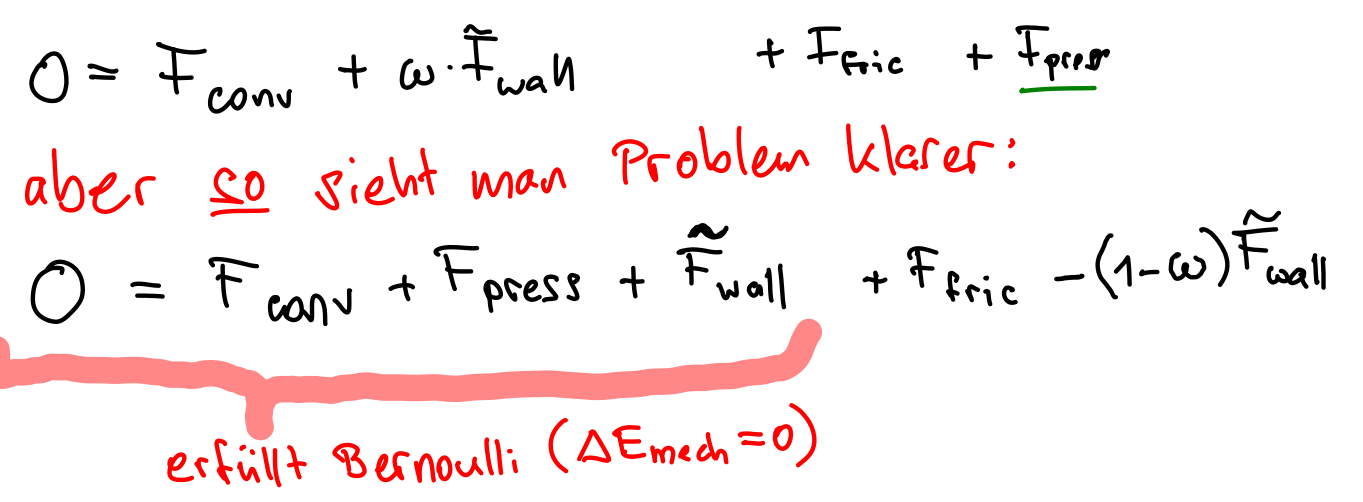 0 = F_conv + ω · F̃_wall + F_fric + F_press
aber so sieht man Problem klarer:
0 = F_conv + F_press + F̃_wall + F_fric - (1-ω) F̃_wall
erfüllt Bernoulli (ΔE_mech = 0)